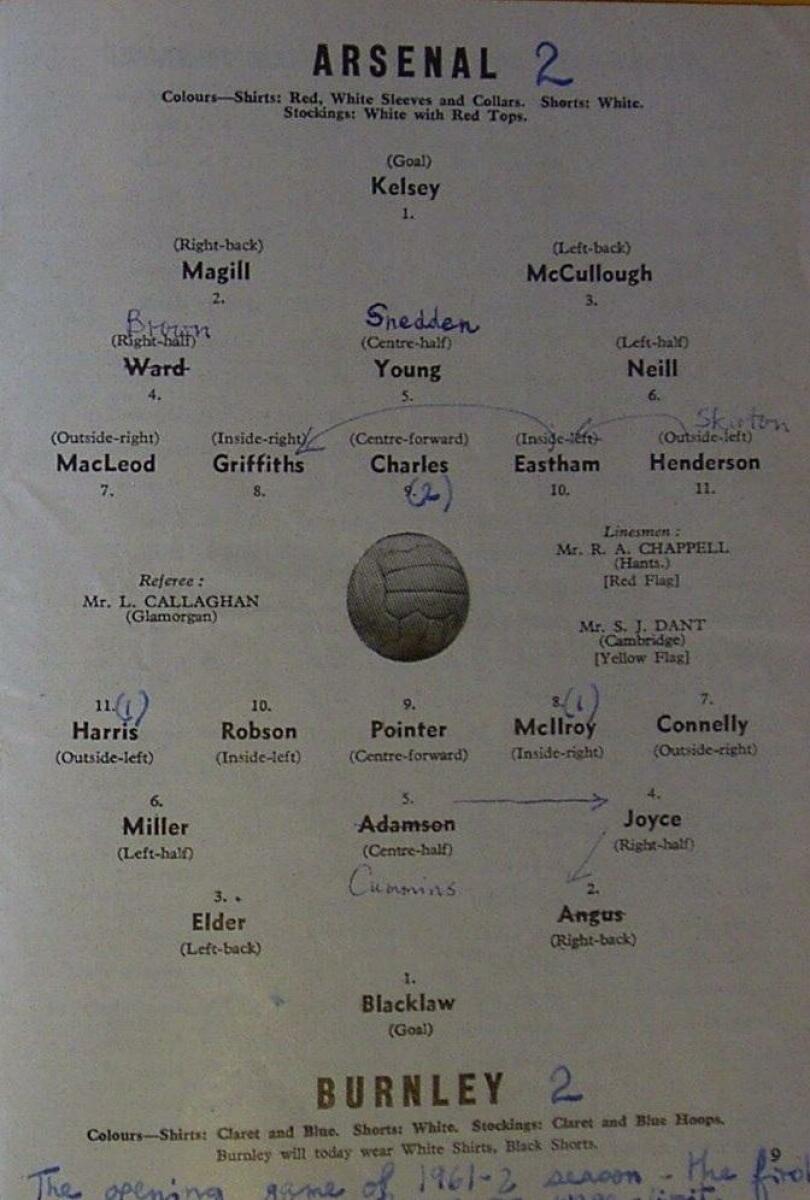 ARSENAL 2
Colours—Shirts: Red, White Sleeves and Collars. Shorts: White.
Stockings: White with Red Tops.
(Goal)
Kelsey
1.
(Right-back) (Left-back)
Magill McCullough
2. 3.
Brown Snedden
(Right-half) (Centre-half) (Left-half)
Ward Young Neill
4. 5. 6.
Skirton
(Outside-right) (Inside-right) (Centre-forward) (Inside-left) (Outside-left)
MacLeod Griffiths Charles Eastham Henderson
7. 8. 9. (2) 10. 11.
Linesmen :
Mr. R. A. CHAPPELL
(Hants.)
[Red Flag]
Referee :
Mr. L. CALLAGHAN
(Glamorgan)
Mr. S. J. DANT
(Cambridge)
[Yellow Flag]
11. (1) 10. 9. 8. (1) 7.
Harris Robson Pointer McIlroy Connelly
(Outside-left) (Inside-left) (Centre-forward) (Inside-right) (Outside-right)
6. 5. 4.
Miller Adamson Joyce
(Left-half) (Centre-half) (Right-half)
Cummins
3. 2.
Elder Angus
(Left-back) (Right-back)
1.
Blacklaw
(Goal)
BURNLEY 2
Colours—Shirts: Claret and Blue. Shorts: White. Stockings: Claret and Blue Hoops.
Burnley will today wear White Shirts, Black Shorts.
9
The opening game of 1961-2 season - the first